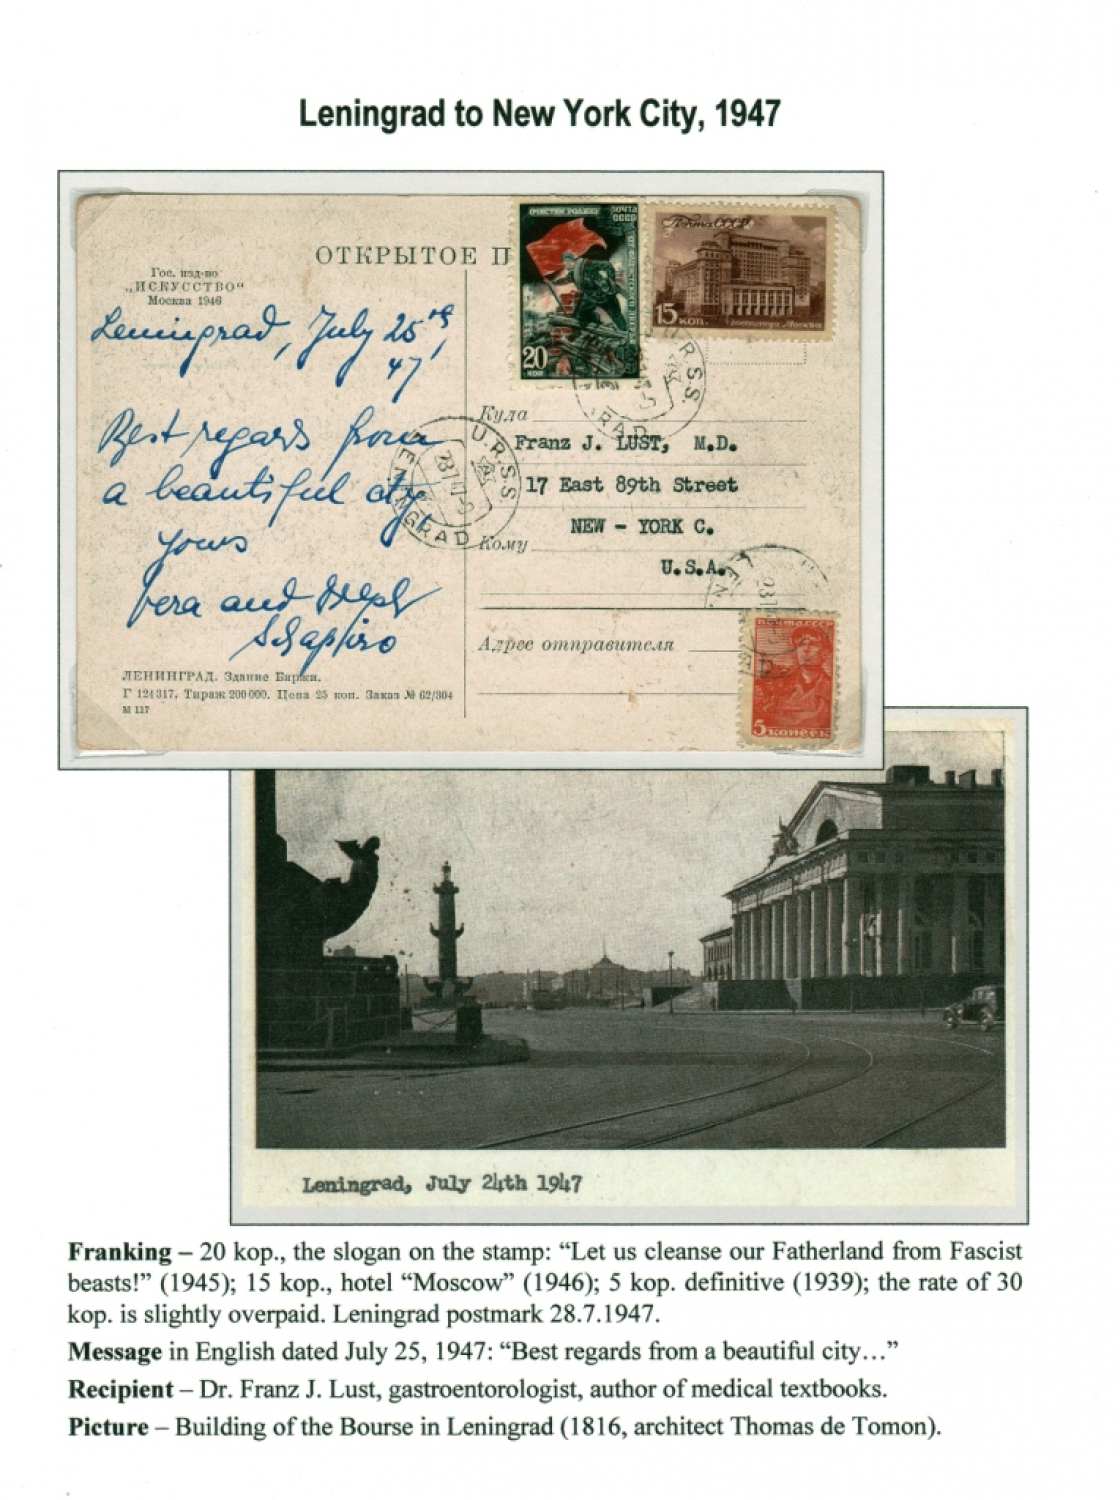 Leningrad to New York City, 1947
ОТКРЫТОЕ П
Гос. изд-во
„ИСКУССТВО“
Москва 1946
Leningrad, July 25th,
47
Best regards from
a beautiful city,
yours
Vera and
Schapiro
ЛЕНИНГРАД. Здание Биржи.
Г 124317. Тираж 200 000. Цена 25 коп. Заказ № 62/304
М 117
ОЧИСТИМ РОДИНУ
ПОЧТА
СССР
20
КОП
Почта СССР
15 коп.
гостиница Москва
U.R.S.S.
LENINGRAD
28747
Куда
Franz J. LUST, M.D.
17 East 89th Street
NEW - YORK C.
Кому
U.S.A.
Адрес отправителя
ПОЧТА СССР
5 КОПЕЕК
Leningrad, July 24th 1947
Franking – 20 kop., the slogan on the stamp: “Let us cleanse our Fatherland from Fascist
beasts!” (1945); 15 kop., hotel “Moscow” (1946); 5 kop. definitive (1939); the rate of 30
kop. is slightly overpaid. Leningrad postmark 28.7.1947.
Message in English dated July 25, 1947: “Best regards from a beautiful city…”
Recipient – Dr. Franz J. Lust, gastroentorologist, author of medical textbooks.
Picture – Building of the Bourse in Leningrad (1816, architect Thomas de Tomon).